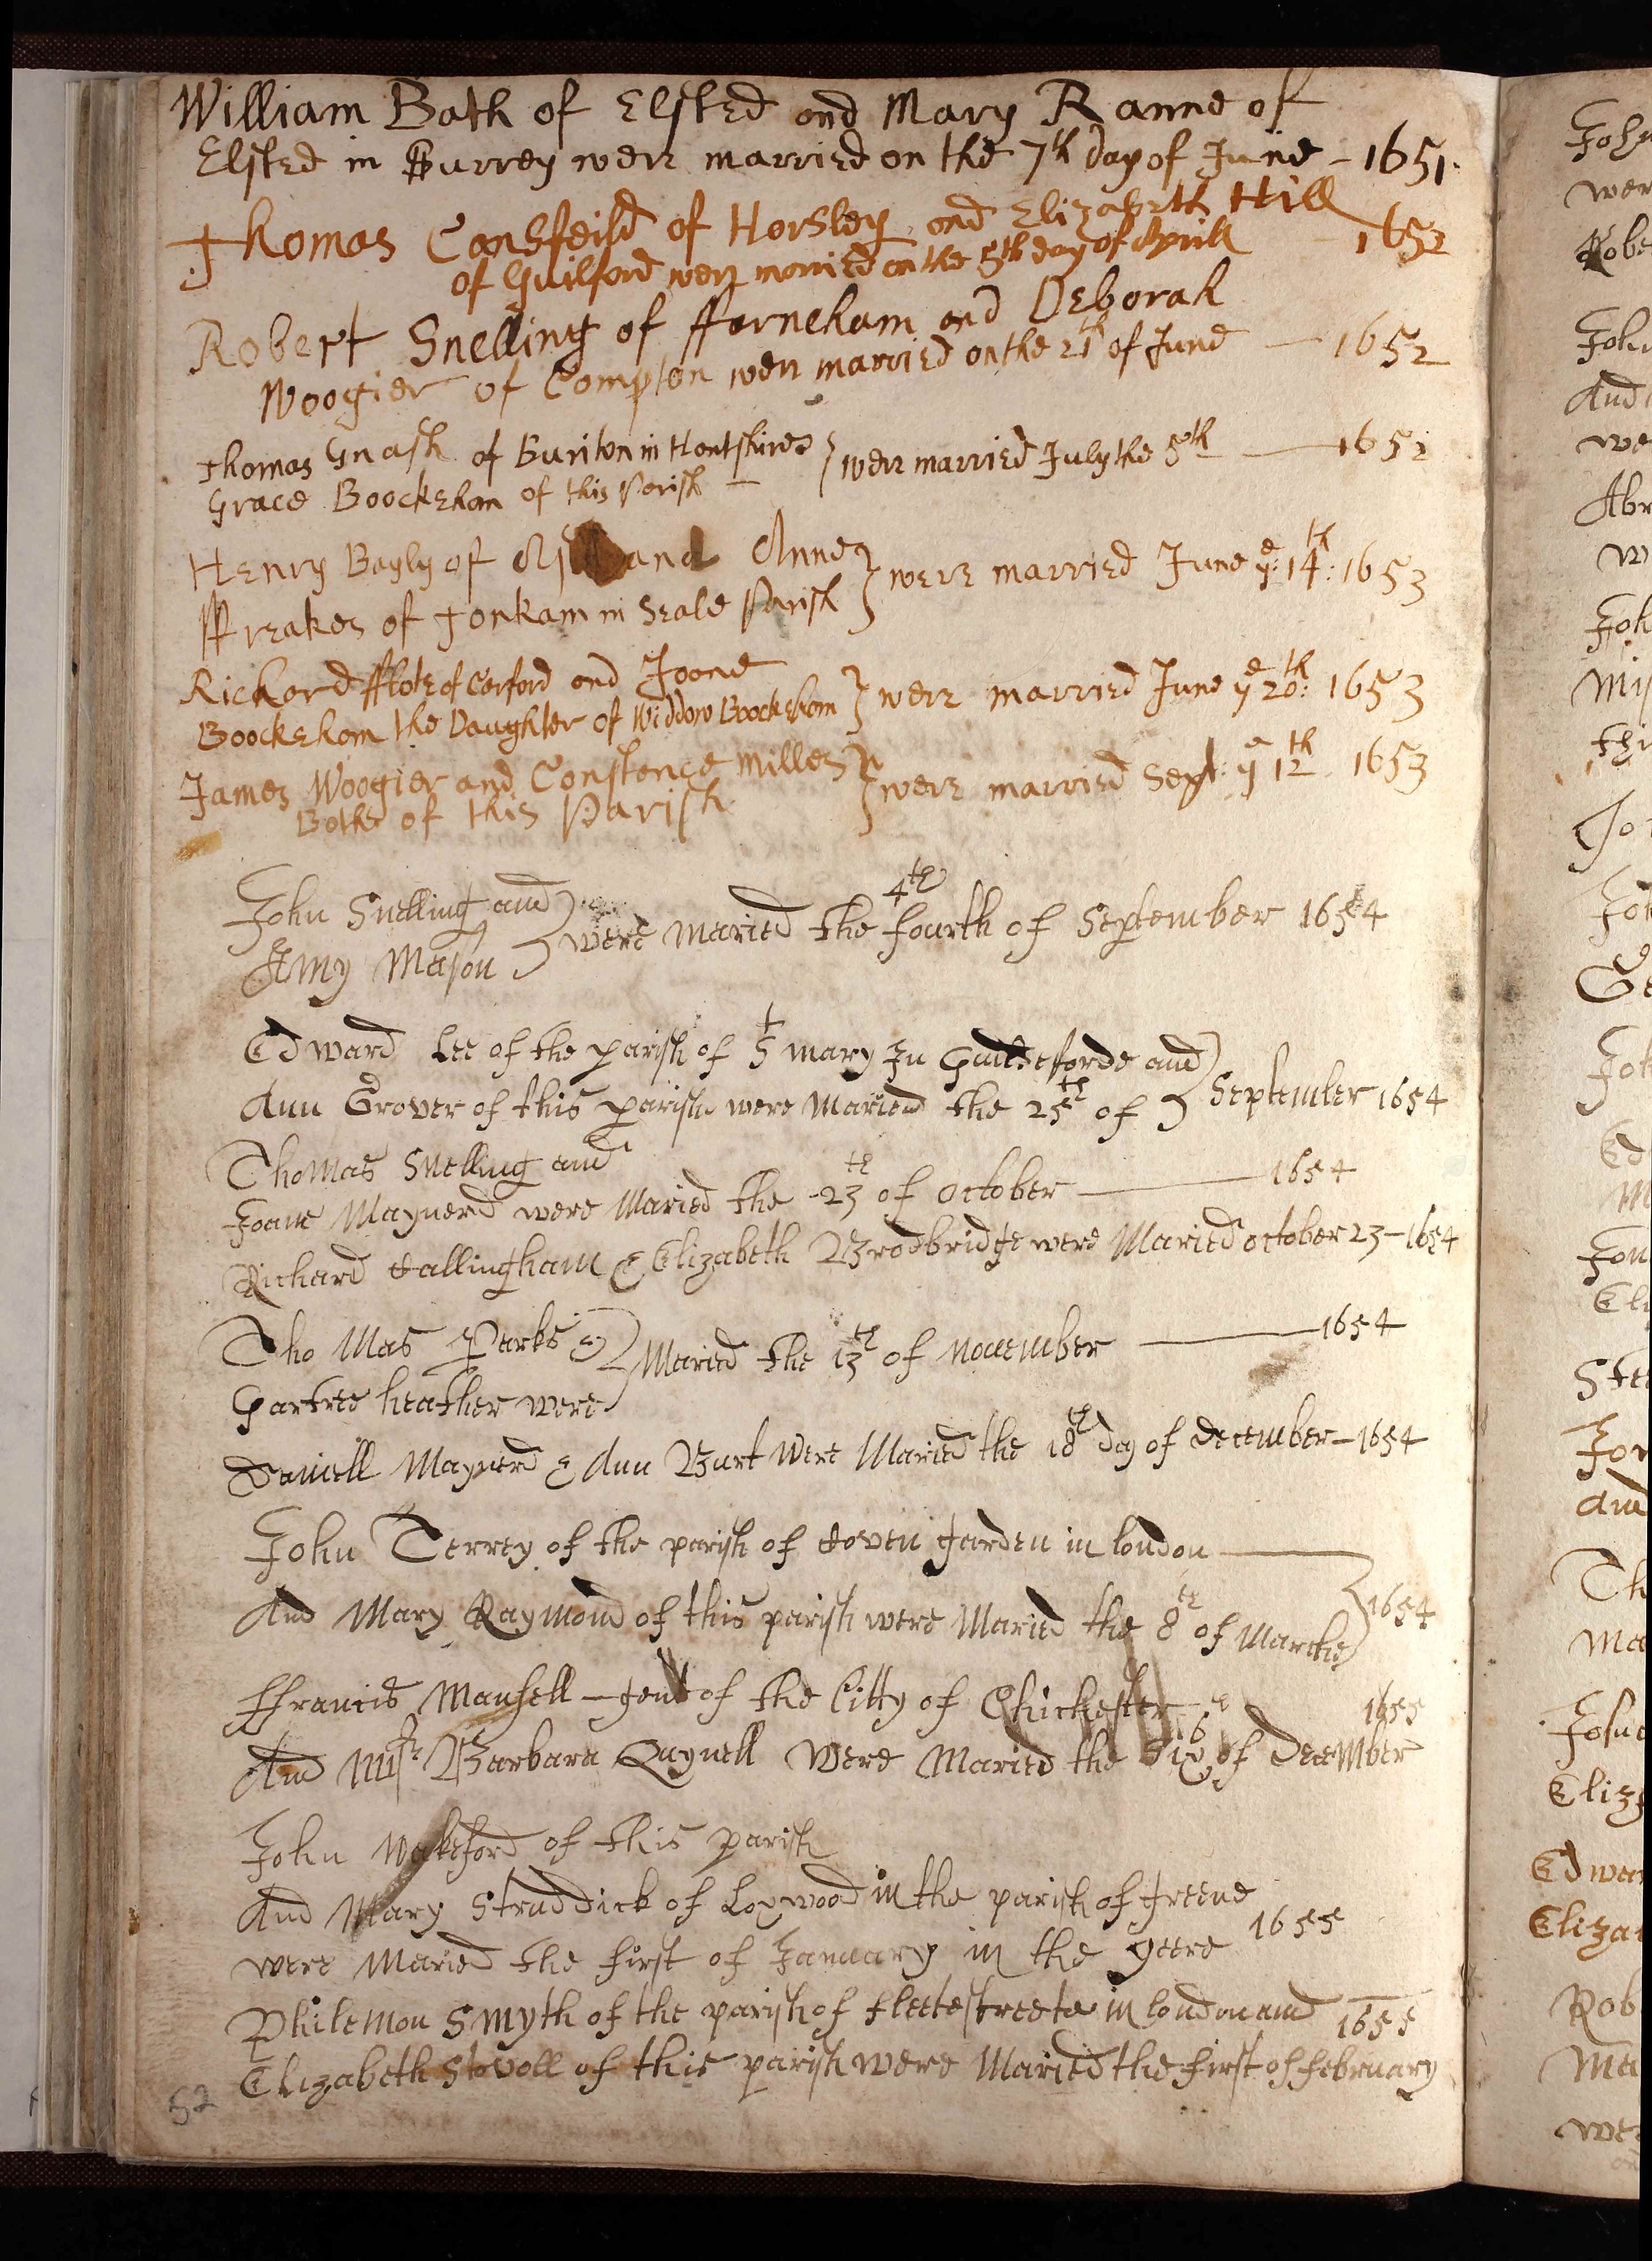 William Bath of Elsted and Mary Ranne of
Elsted in Surrey were married on the 7th day of June - 1651.
Thomas Cansfeild of Horsley and Elizabeth Hill
of Guilford were married on the 5th day of Aprill 1652
Robert Snelling of ffarneham and Deborah
Woogier of Compton were married on the 21th of June — 1652
Thomas Gnash of Buriton in Hantshire
Grace Boockeham of this Parish — } were married July the 5th — 1652
Henry Bayly of and Anne
ffreakes of Tonham in Seale Parish } were married June ye: 14th: 1653
Richard fflote of Carford and Joane
Boockeham the Daughter of Widdow Boockeham } were married June ye 20th: 1653
James Woogier and Constance Milles
Bothe of this Parish } were married Sept: ye 12th 1653
John Snelling and
Amy Mason } were Maried the 4th fourth of September 1654
Edward Lee of the parish of St mary In Guildeforde and
Ann Grover of this parish were Maried the 25th of } September 1654
Thomas Snelling and
Joane Maynerd were Maried the 23th of October — 1654
Richard Callingham & Elizabeth Brodbridge were Maried october 23 - 1654
Thomas Parks &
Gartred heather were } Maried the 13th of November — 1654
Daniell Maynerd & Ann Burt were Maried the 18th day of December - 1654
John Terrey of the parish of Coven garden in london —
And Mary Raymond of this parish were Maried the 8th of Marche } 1654
ffrancis Mansell - gent of the Citty of Chichester 1655
And Mistr Barbara Quynell were Maried the 6th Six of December
John Wakeford of this parish
And Mary Struddick of Loxwood in the parish of greene
were Maried the first of January in the yeere 1655
Philemon Smyth of the parish of fleetestreete in london and 1655
Elizabeth Stovoll of this parish were Maried the first of february
52